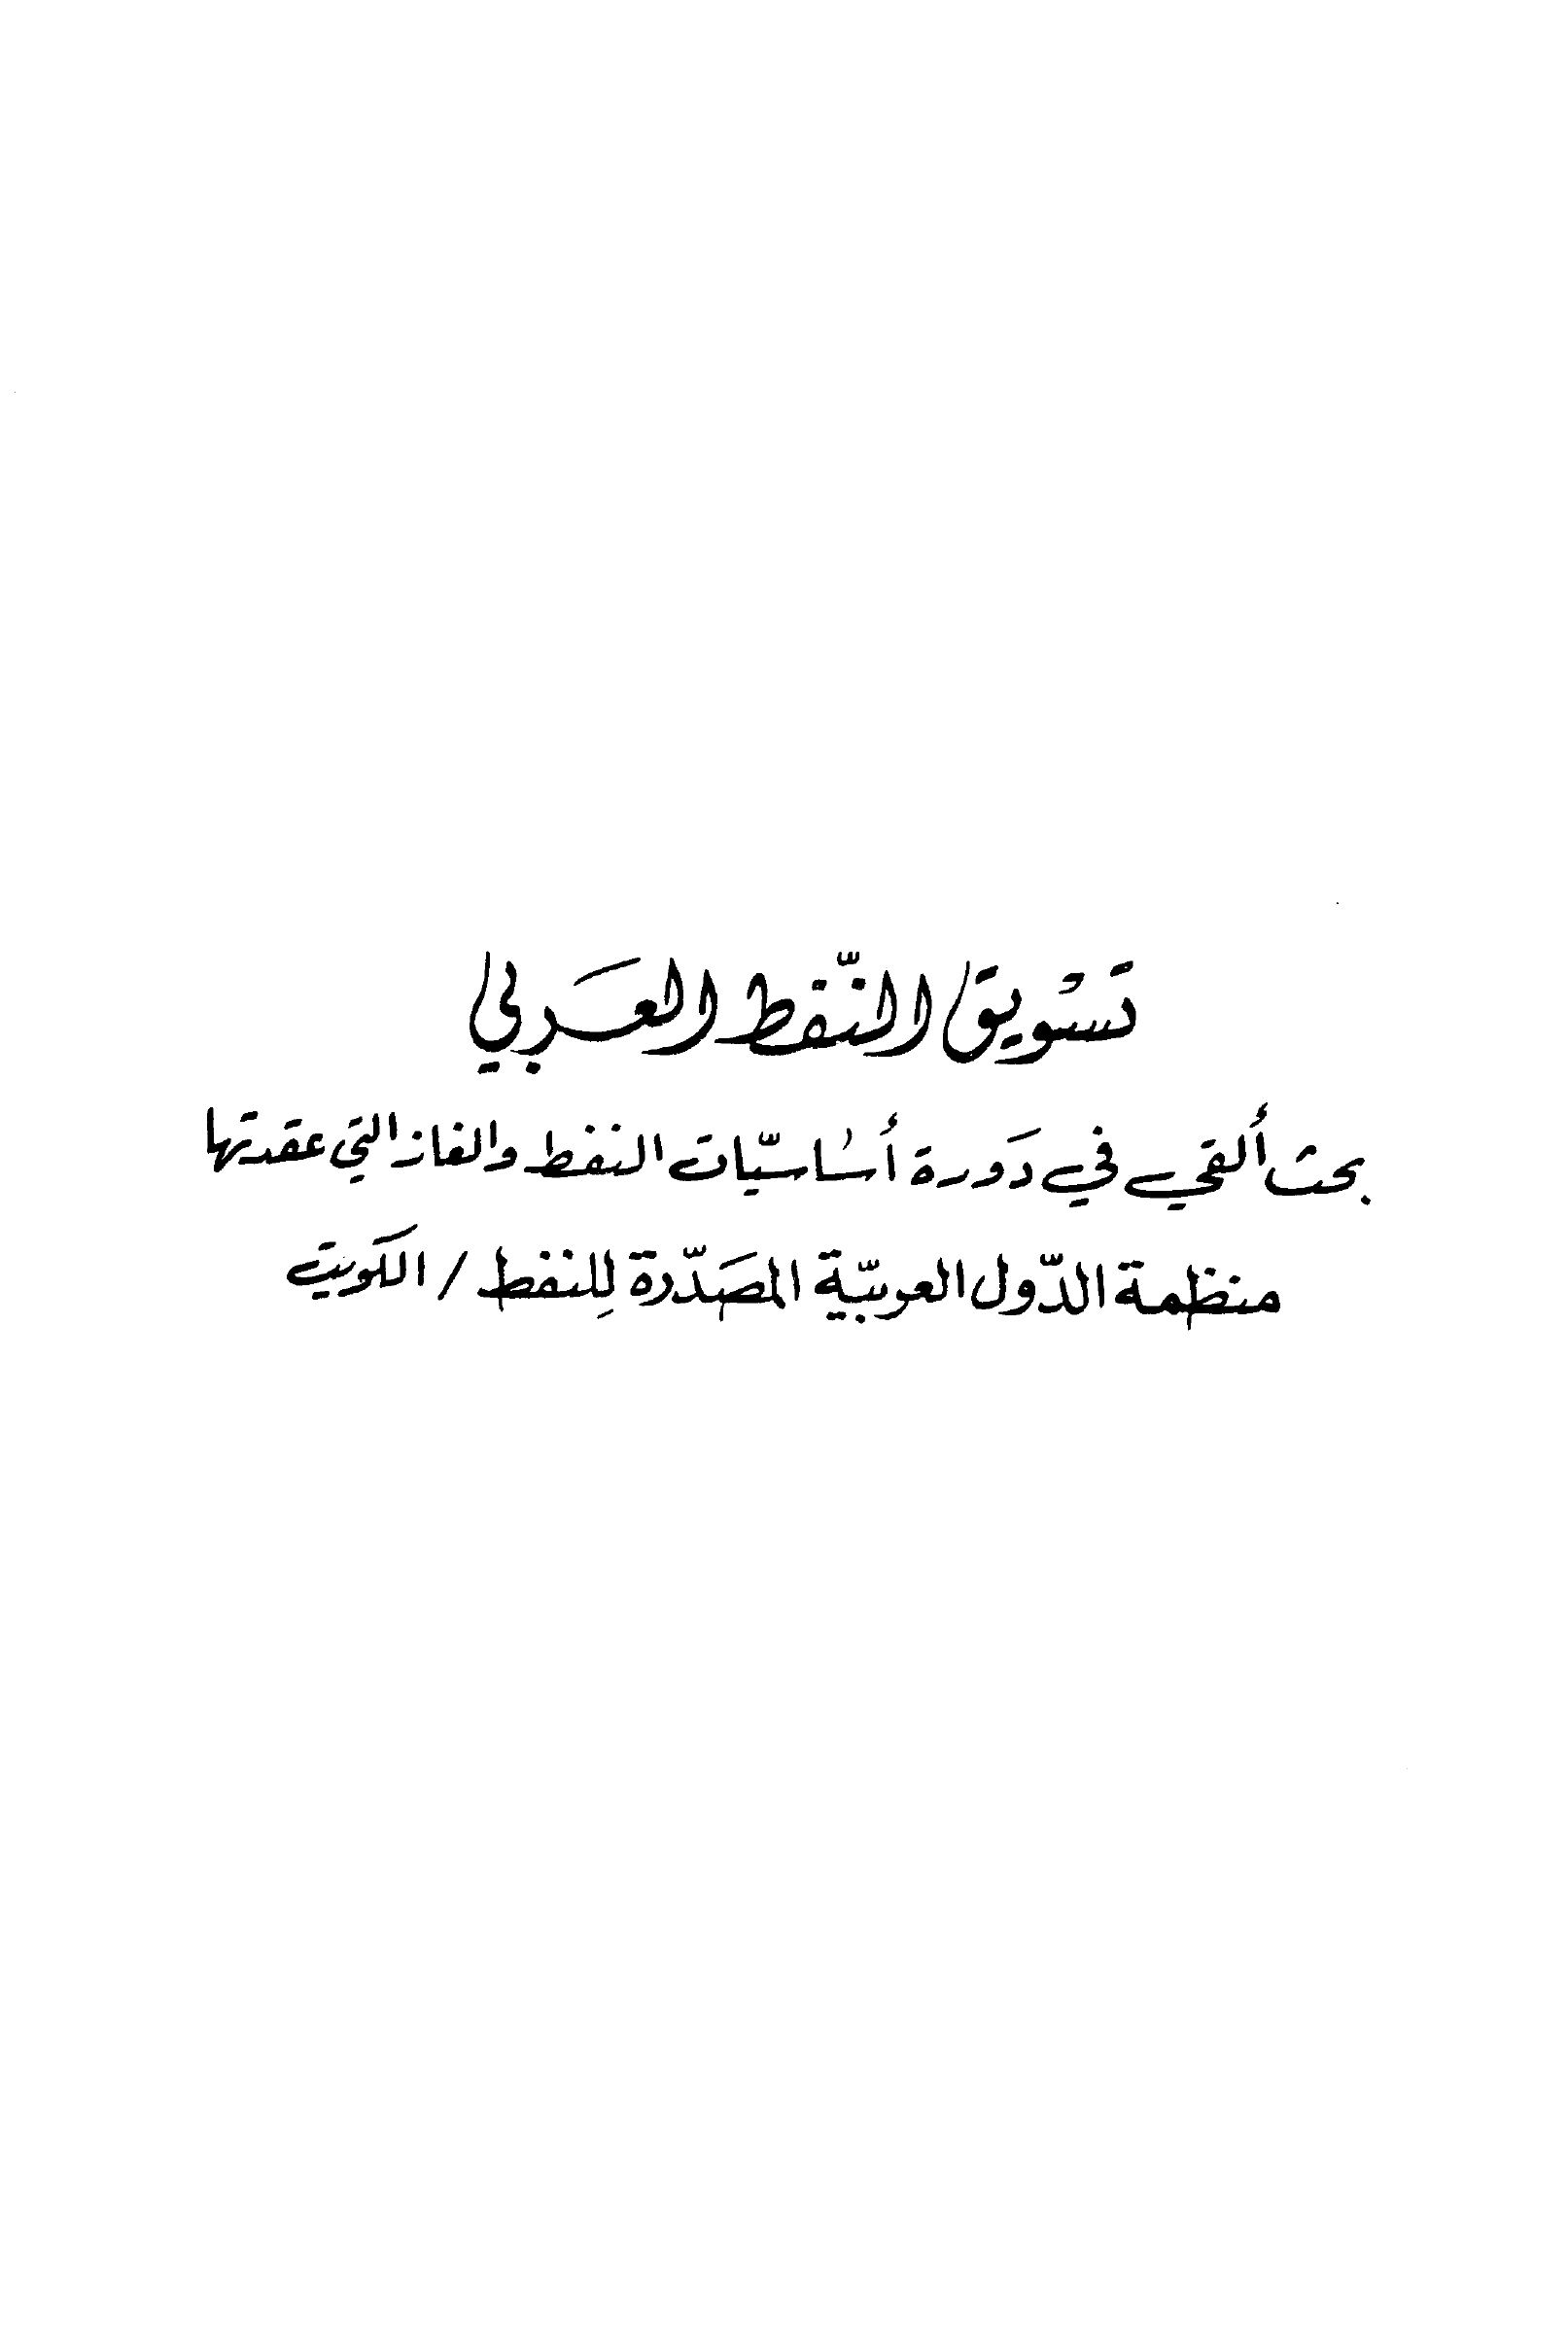 تسويق النّفط العَربي
بحث ألقي في دَورة أساسيّات النفط والغاز التي عقدتها
منظمة الدّول العربيّة المصَدّرة لِلنفط / الكويت